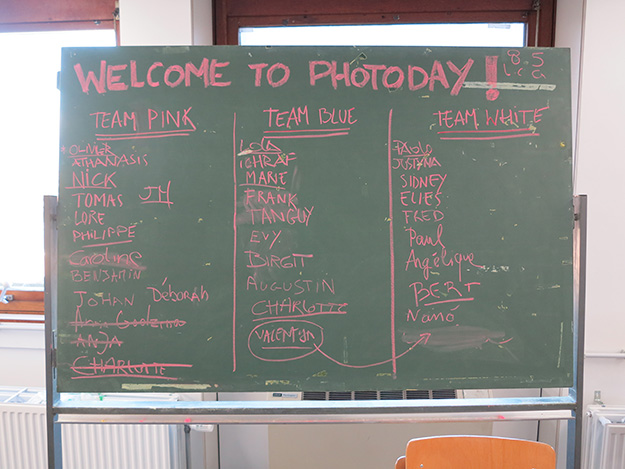 WELCOME TO PHOTODAY!
8.5
TEAM PINK
OLIVIER
ATHANASIS
NICK
TOMAS JH
LORE
PHILIPPE
Caroline
BENJAMIN
JOHAN Déborah
ANJA
CHARLOTTE
TEAM BLUE
LOLA
ICHRAF
MARIE
FRANK
TANGUY
EVY
BIRGIT
AUGUSTIN
CHARLOTTE
VALENTIJN
TEAM WHITE
PABLO
JUSTYNA
SIDNEY
ELIES
FRED
Paul
Angélique
BERT
Nanó